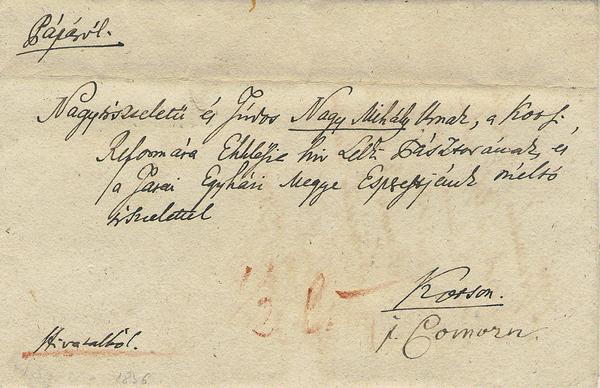 Pápáról.
Nagytiszteletű és Tudos Nagy Mihály Urnak, a Kocsi
Reformára Ekklésia hiv Lelki Pásztorának, és
a Tatai Egyházi Megye Esperestjének méltó
tisztelettel
Kocson.
p. Comorn.
Hivatalból.
1836